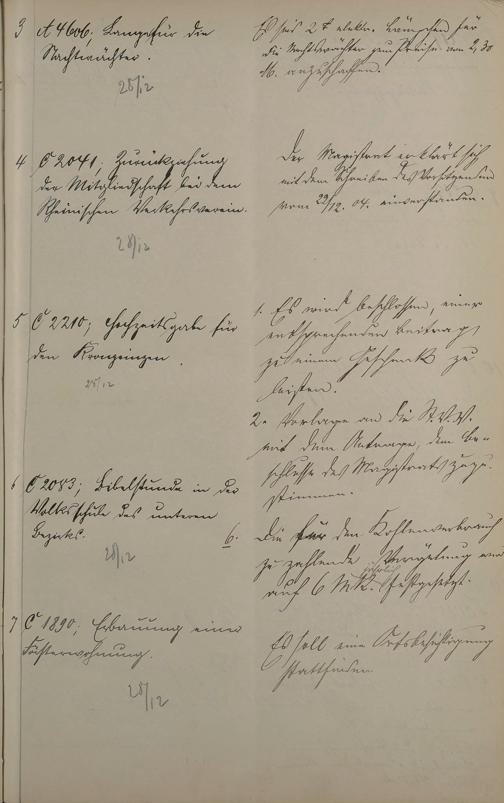 3 A 4606; Lampe für die
Nachtwächter.
28/12
Es seien 2 elektr. Lämpchen für
die Nachtwächter zum Preise von 2,30
M. anzuschaffen.
4 C 2041; Zurückziehung
der Mitgliedschaft bei dem
Rheinischen Verkehrsverein.
28/12
Der Magistrat erklärt sich
mit dem Schreiben des Vorsitzenden
vom 22/12. 04. einverstanden.
5 C 2210; Hochzeitsgabe für
den Kronprinzen.
28/12
1. Es wird beschlossen, einen
entsprechenden Beitrag
zu einem Geschenk zu
leisten.
2. Vorlage an die St.V.V.
mit dem Antrage, dem Be-
schlusse des Magistrats zuzu-
stimmen.
6 C 2083; Bibelstunde in der
Volksschule des unteren
Bezirks.
28/12
6.
Die für den Kohlenverbrauch
zu zahlende Vergütung wird
auf 6 Mk. jährlich festgesetzt.
7 C 1890; Erbauung einer
Försterwohnung.
28/12
Es soll eine Ortsbesichtigung
stattfinden